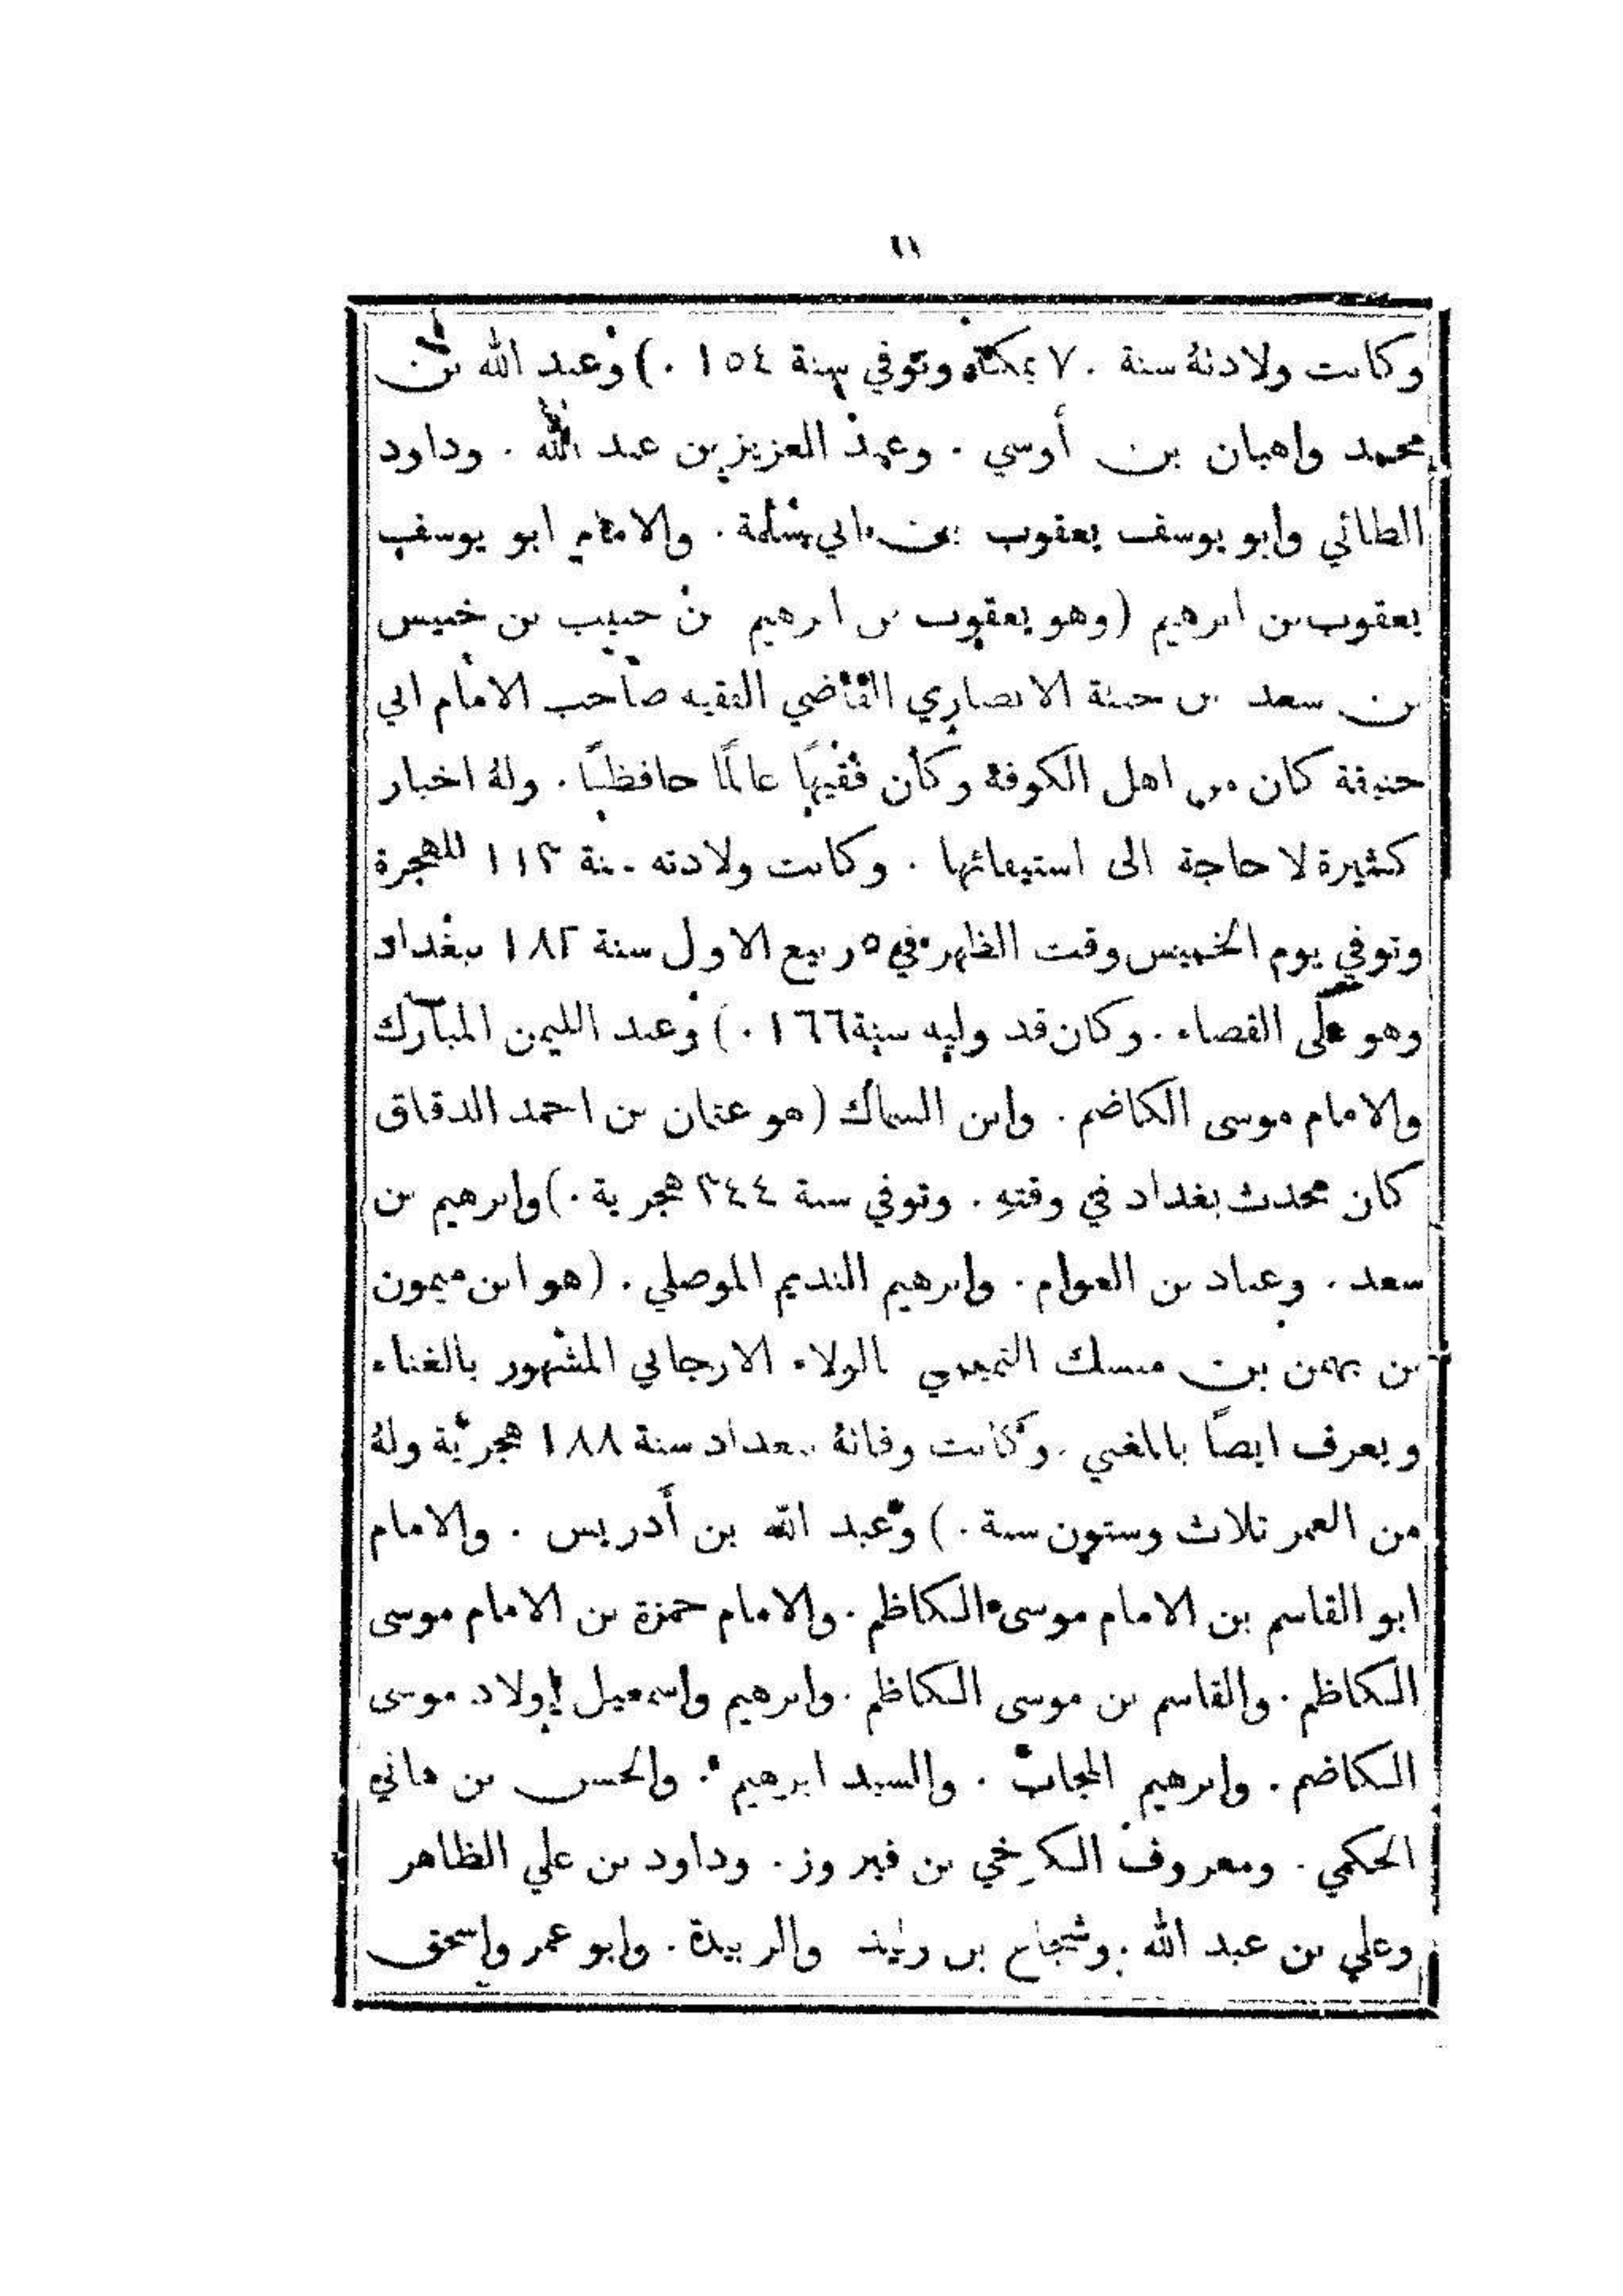 ١١
وكانت ولادتهُ سنة ٧٠ بمكة وتوفي سنة ١٥٤.) وعبد الله بن
محمد واهبان بن أوسي. وعبد العزيز بن عبد الله. وداود
الطائي وابو يوسف يعقوب بن ابي سلمة. والامام ابو يوسف
يعقوب بن ابرهيم (وهو يعقوب بن ابرهيم بن حبيب بن خنيس
بن سعد بن حبتة الانصاري القاضي الفقيه صاحب الامام ابي
حنيفة كان من اهل الكوفة وكان فقيهًا عالمًا حافظًا. ولهُ اخبار
كثيرة لا حاجة الى استيفائها. وكانت ولادته سنة ١١٣ للهجرة
وتوفي يوم الخميس وقت الظهر في ٥ ربيع الاول سنة ١٨٢ ببغداد
وهو على القضاء. وكان قد وليه سنة ١٦٦.) وعبد الليمن المبارك
والامام موسى الكاضم. وابن السماك (هو عثمان بن احمد الدقاق
كان محدث بغداد في وقتهِ. وتوفي سنة ٣٤٤ هجرية.) وابرهيم بن
سعد. وعباد بن العوام. وابرهيم النديم الموصلي. (هو ابن ميمون
بن بهمن بن مسك التميمي بالولاء الارجاني المشهور بالغناء
ويعرف ايضًا بالمغني. وكانت وفاتهُ ببغداد سنة ١٨٨ هجرية ولهُ
من العمر ثلاث وستون سنة.) وعبد الله بن أدريس. والامام
ابو القاسم بن الامام موسى الكاظم. والامام حمزة بن الامام موسى
الكاظم. والقاسم بن موسى الكاظم. وابرهيم واسمعيل اولاد موسى
الكاضم. وابرهيم المجاب. والسيد ابرهيم. والحسن بن هاني
الحكمي. ومعروف الكرخي بن فيروز. وداود بن علي الظاهر
وعلي بن عبد الله. وشجاع بن والربيدة. وابو عمر واسحق